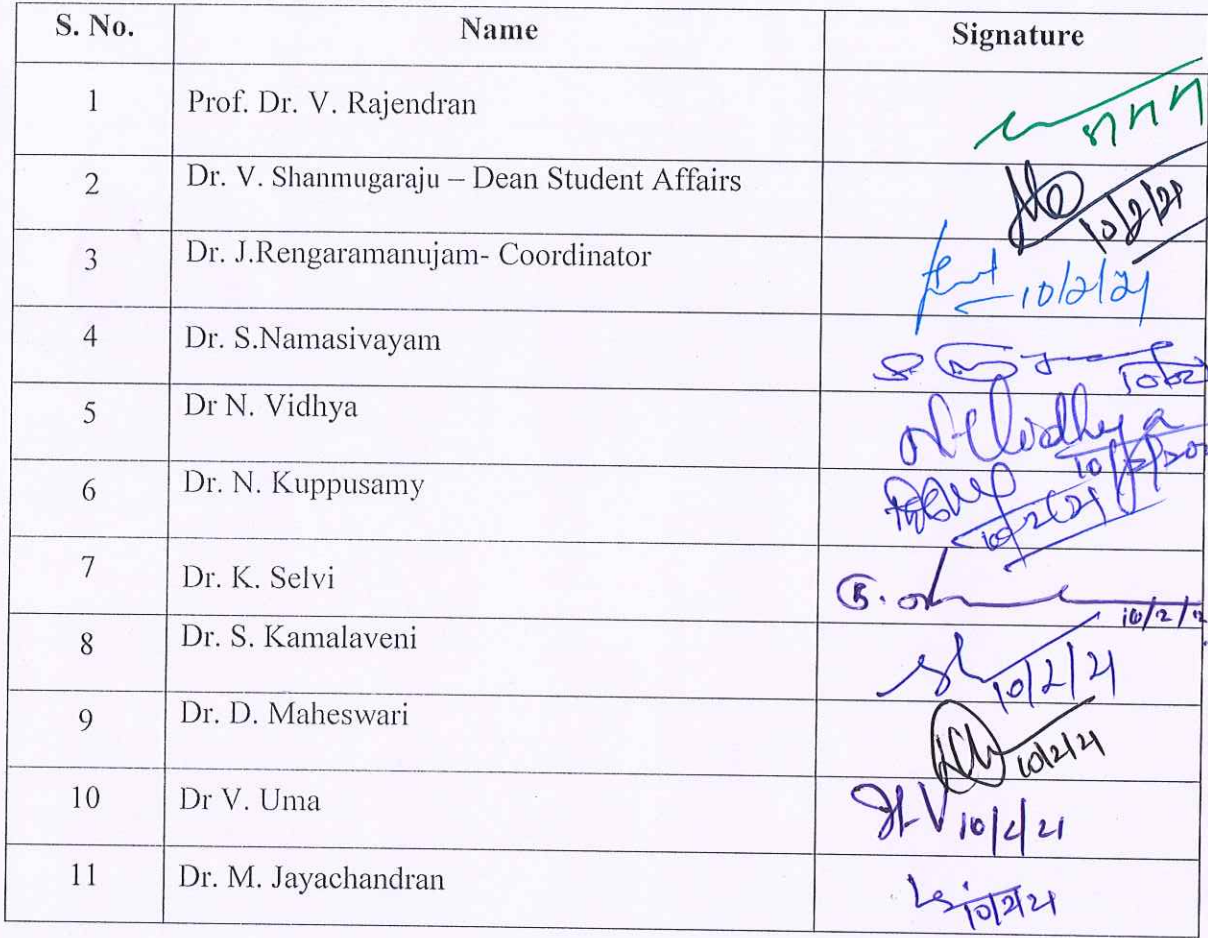 S. No. Name Signature
1 Prof. Dr. V. Rajendran
2 Dr. V. Shanmugaraju – Dean Student Affairs 10/2/21
3 Dr. J.Rengaramanujam- Coordinator 10/2/21
4 Dr. S.Namasivayam
5 Dr N. Vidhya N. Vidhya
6 Dr. N. Kuppusamy 10/2/21
7 Dr. K. Selvi 10/2/2
8 Dr. S. Kamalaveni 10/2/21
9 Dr. D. Maheswari 10/2/21
10 Dr V. Uma 10/2/21
11 Dr. M. Jayachandran 10/2/21